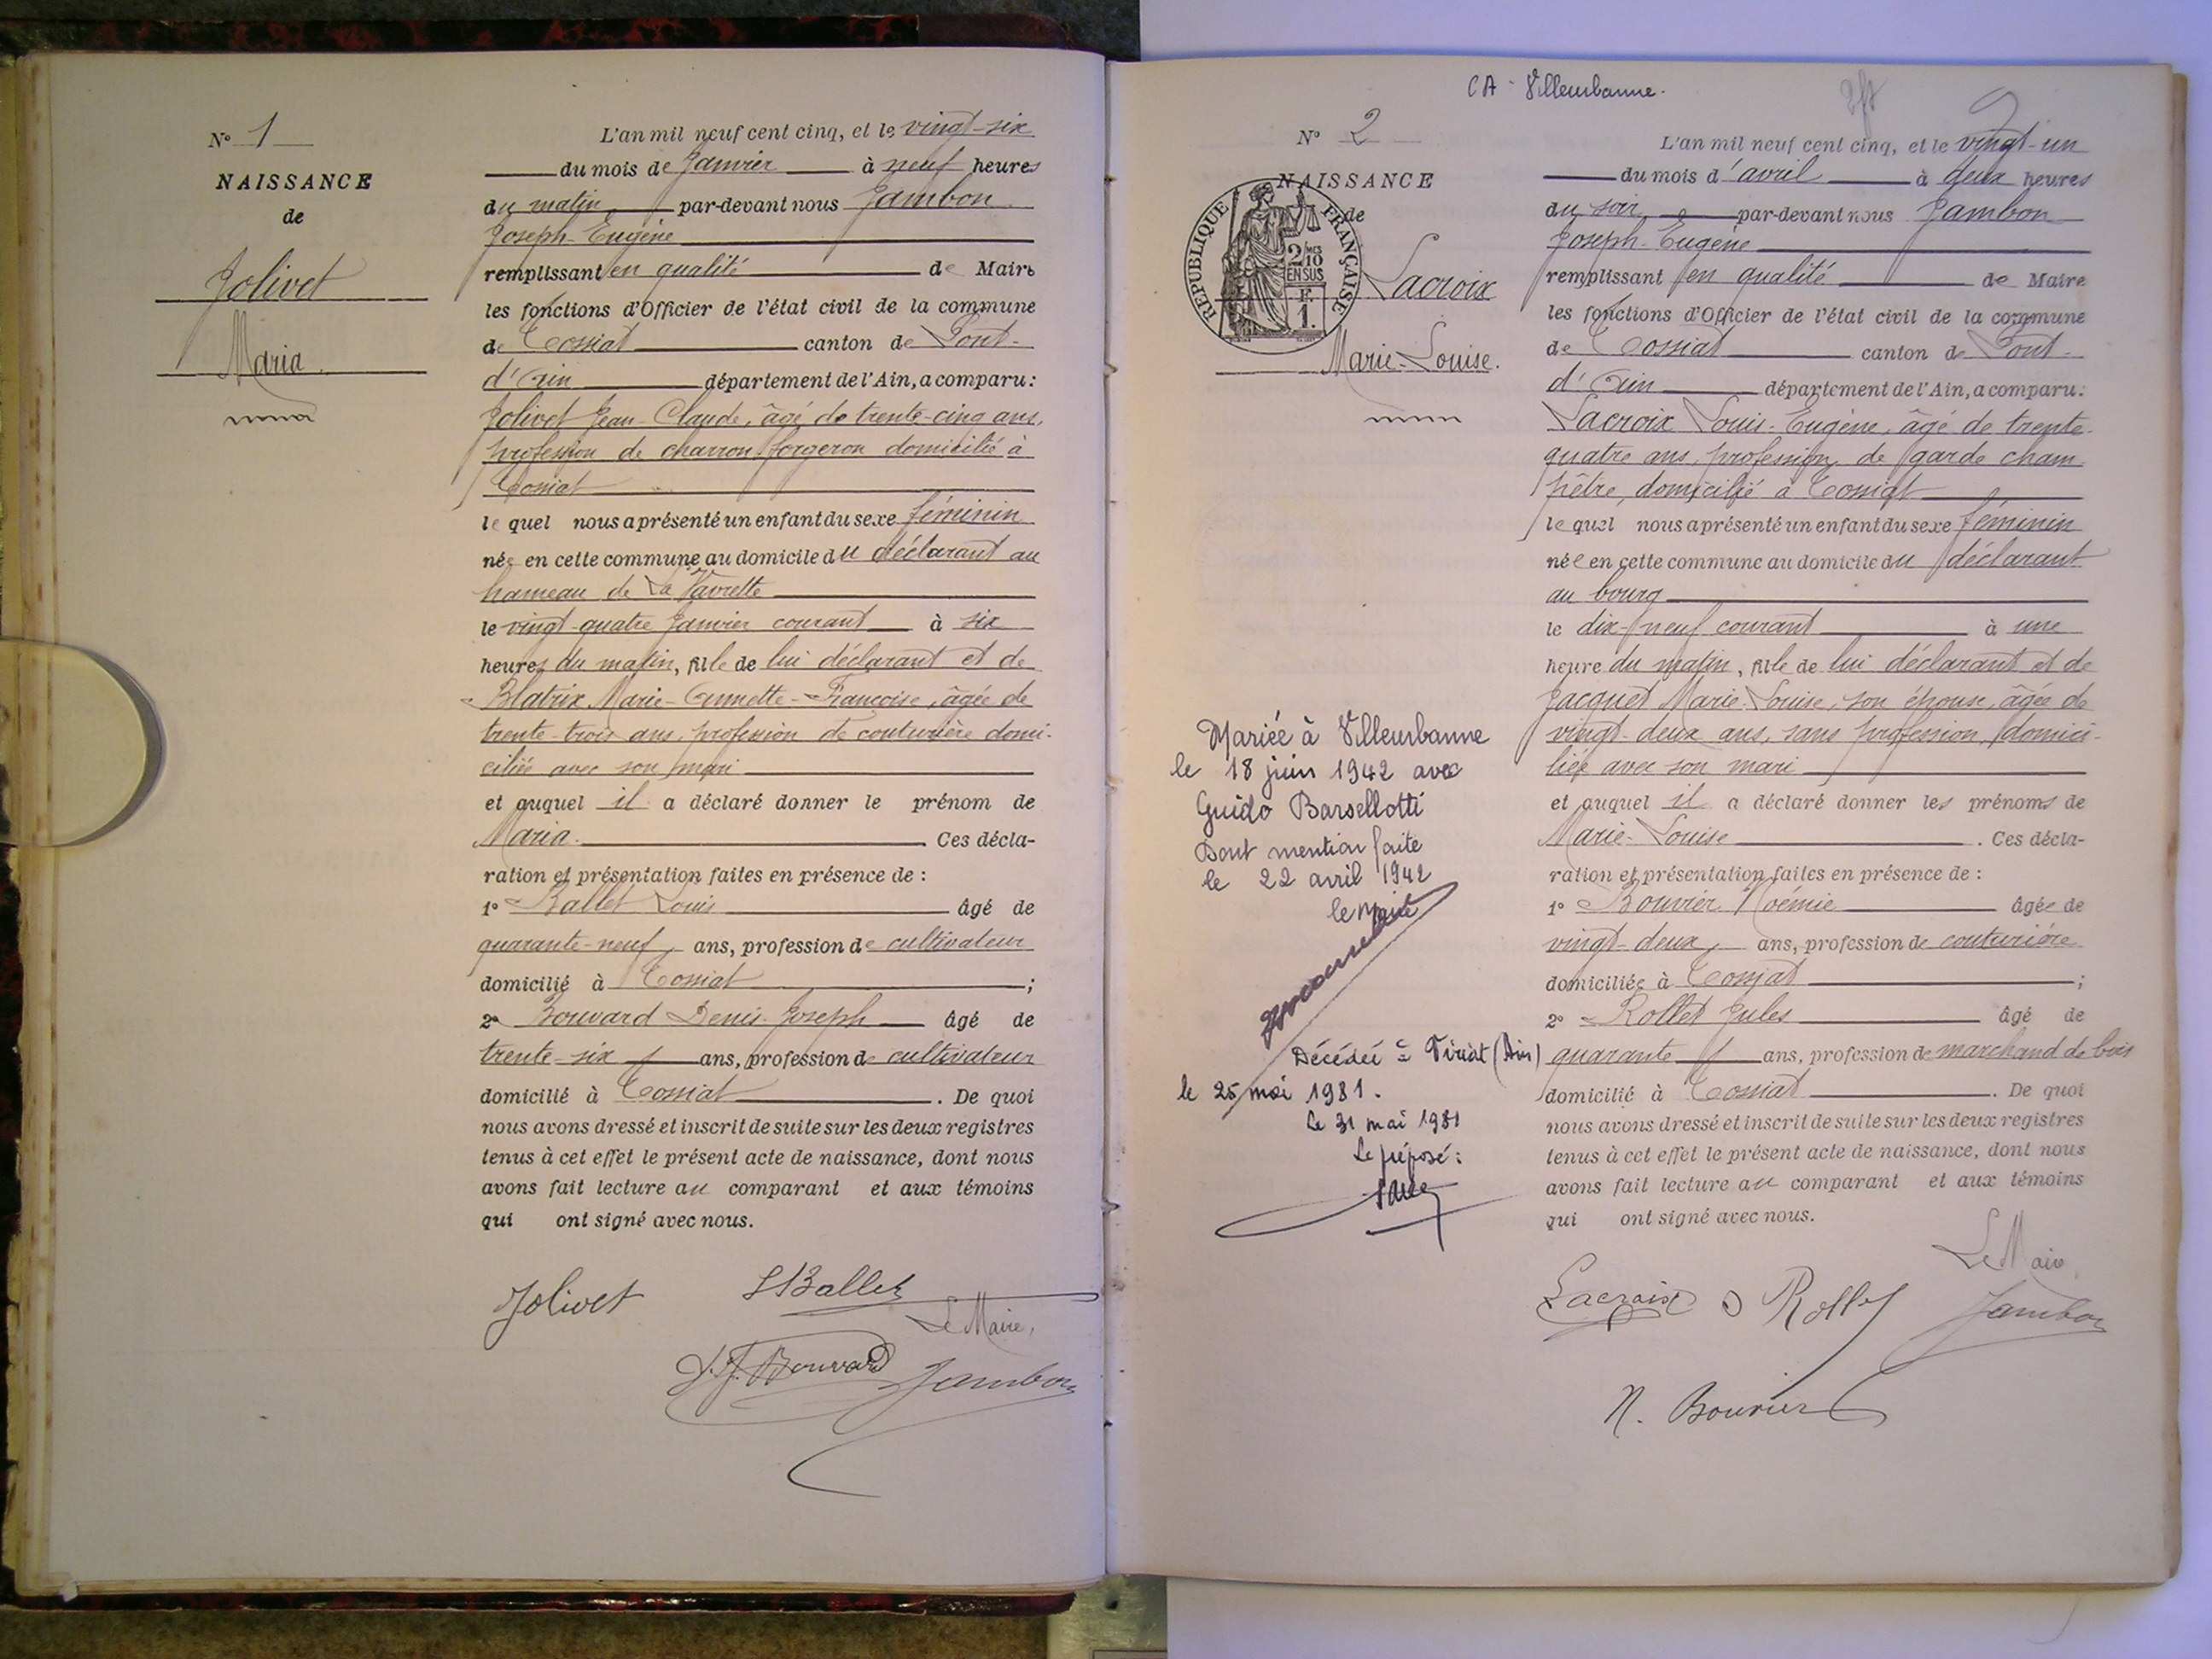 N° 1
NAISSANCE
de
Jolivet
Maria
L'an mil neuf cent cinq, et le vingt-six
du mois de Janvier à neuf heures
du matin, par-devant nous Jambon
Joseph-Eugène
remplissant en qualité de Maire
les fonctions d'Officier de l'état civil de la commune
de Tossiat canton de Pont-
d'Ain département de l'Ain, a comparu:
Jolivet Jean-Claude, âgé de trente-cinq ans,
profession de charron forgeron domicilié à
Tossiat
le quel nous a présenté un enfant du sexe féminin
née en cette commune au domicile du déclarant au
hameau de La Vavrette
le vingt-quatre Janvier courant à six
heures du matin, fille de lui déclarant et de
Blatrix Marie-Annette-Françoise, âgée de
trente-trois ans, profession de couturière domi-
ciliée avec son mari
et auquel il a déclaré donner le prénom de
Maria. Ces décla-
ration et présentation faites en présence de :
1° Ballet Louis âgé de
quarante-neuf ans, profession de cultivateur
domicilié à Tossiat ;
2° Bouvard Denis-Joseph âgé de
trente-six ans, profession de cultivateur
domicilié à Tossiat. De quoi
nous avons dressé et inscrit de suite sur les deux registres
tenus à cet effet le présent acte de naissance, dont nous
avons fait lecture au comparant et aux témoins
qui ont signé avec nous.
Jolivet LBallet
Le Maire,
D.J. Bouvard Jambon
CA - Villeurbanne.
N° 2
NAISSANCE
de
REPUBLIQUE FRANÇAISE
2/10 EN SUS
F. 1.
Lacroix
Marie-Louise.
Mariée à Villeurbanne
le 18 juin 1942 avec
Guido Barsellotti
Dont mention faite
le 22 avril 1942
le Maire
Décédée à Viriat (Ain)
le 25 mai 1981.
le 31 mai 1981
Le préposé:
L'an mil neuf cent cinq, et le vingt-un
du mois d'avril à deux heures
du soir, par-devant nous Jambon
Joseph-Eugène
remplissant en qualité de Maire
les fonctions d'Officier de l'état civil de la commune
de Tossiat canton de Pont-
d'Ain département de l'Ain, a comparu:
Lacroix Louis-Eugène, âgé de trente-
quatre ans, profession de garde cham
pêtre, domicilié à Tossiat
le quel nous a présenté un enfant du sexe féminin
née en cette commune au domicile du déclarant
au bourg
le dix-neuf courant à une
heure du matin, fille de lui déclarant et de
Jacquet Marie-Louise, son épouse, âgée de
vingt-deux ans, sans profession, domici-
liée avec son mari
et auquel il a déclaré donner les prénoms de
Marie-Louise. Ces décla-
ration et présentation faites en présence de :
1° Bouvier Noémie âgée de
vingt-deux ans, profession de couturière
domiciliée à Tossiat ;
2° Rollet Jules âgé de
quarante ans, profession de marchand de bois
domicilié à Tossiat. De quoi
nous avons dressé et inscrit de suite sur les deux registres
tenus à cet effet le présent acte de naissance, dont nous
avons fait lecture au comparant et aux témoins
qui ont signé avec nous.
Le Maire,
Lacroix Rollet Jambon
N. Bouvier